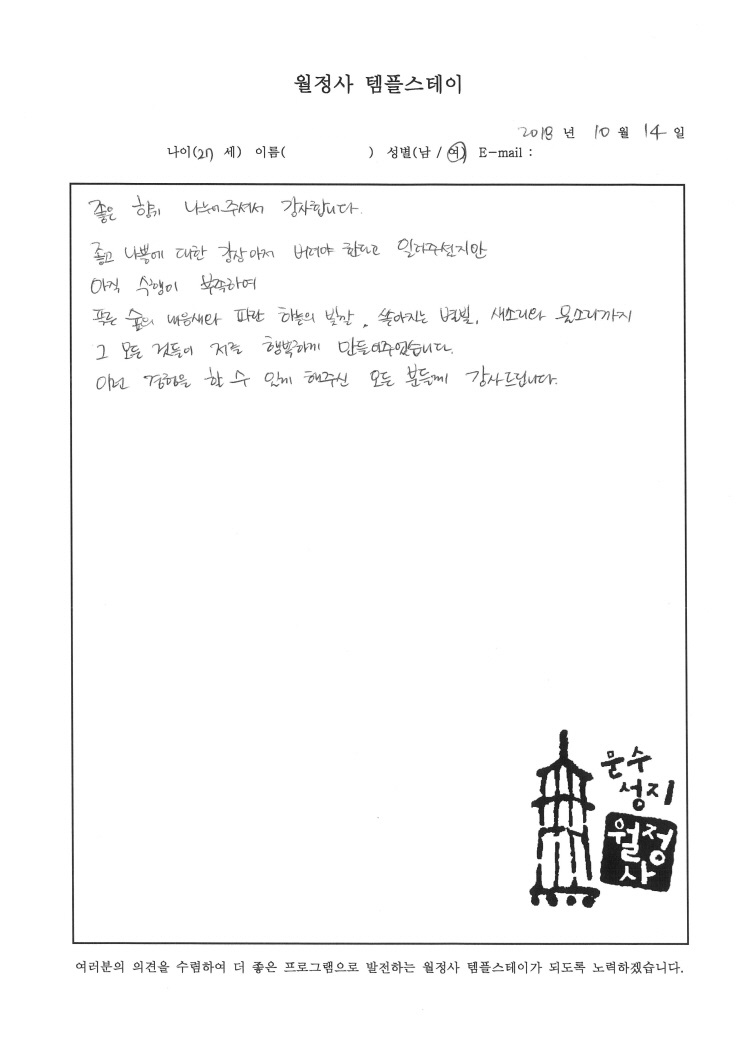 월정사 템플스테이
2018 년 10 월 14 일
나이(27 세) 이름( ) 성별(남 / 여) E-mail :
좋은 향기 나누어주셔서 감사합니다.
좋고 나쁨에 대한 감상마저 버려야 한다고 일러주셨지만
아직 수행이 부족하여
푸른 숲의 내음새와 파란 하늘의 빛깔, 쏟아지는 별빛, 새소리와 물소리까지
그 모든 것들이 저를 행복하게 만들어주었습니다.
이런 경험을 할 수 있게 해주신 모든 분들께 감사드립니다.
문수
성지
월정
사
여러분의 의견을 수렴하여 더 좋은 프로그램으로 발전하는 월정사 템플스테이가 되도록 노력하겠습니다.